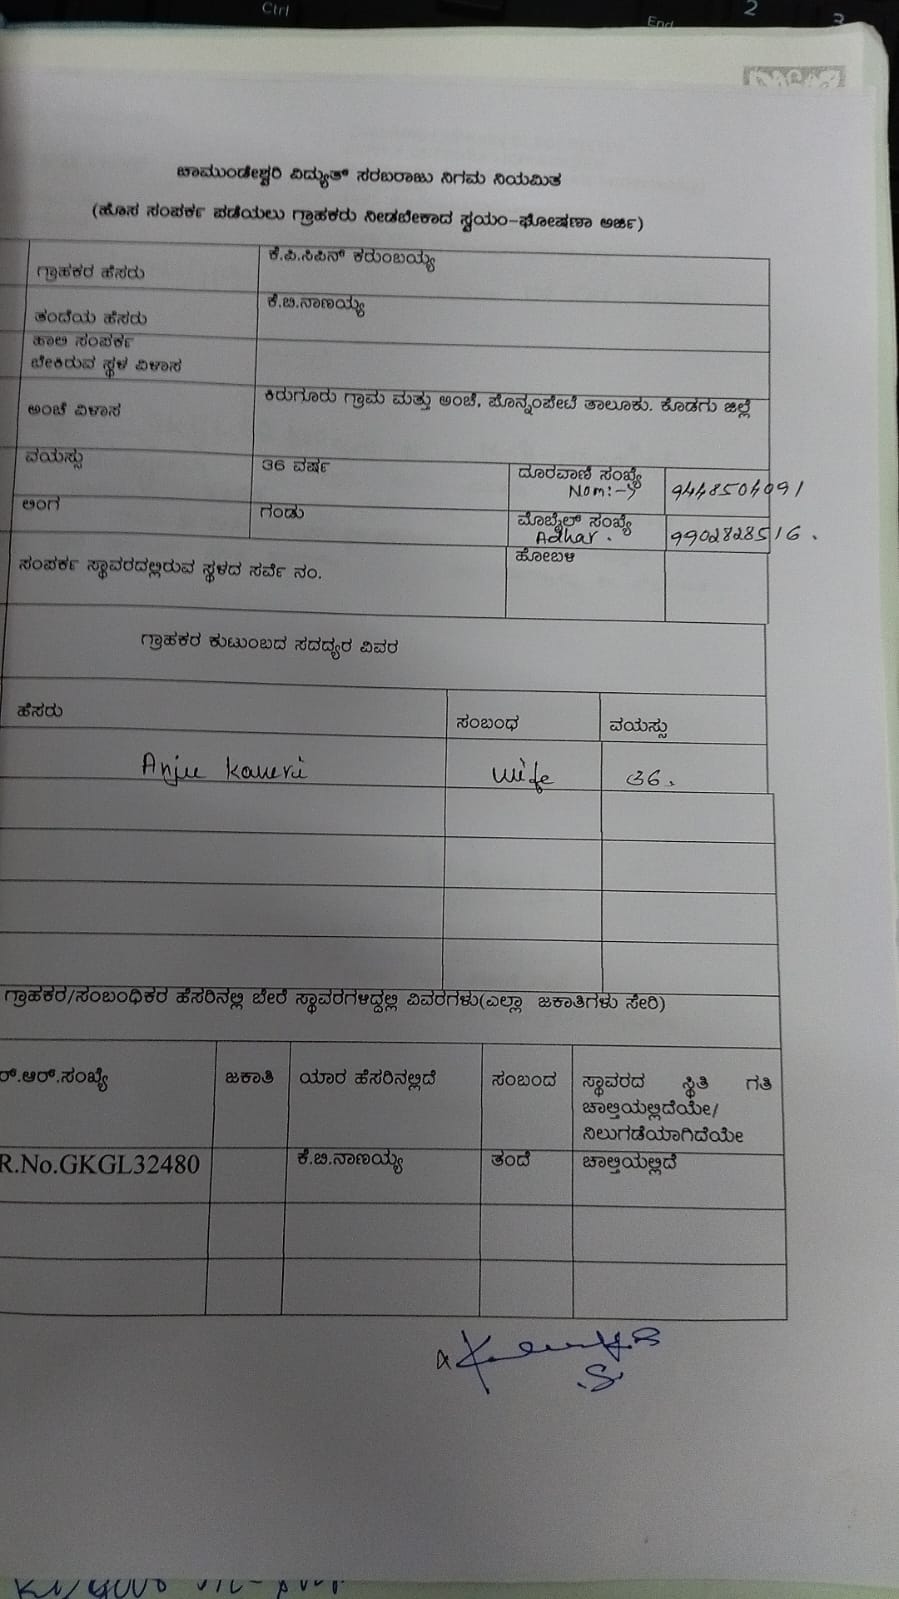 Ctrl
End
2
3
ಚಾಮುಂಡೇಶ್ವರಿ ವಿದ್ಯುತ್ ಸರಬರಾಜು ನಿಗಮ ನಿಯಮಿತ
(ಹೊಸ ಸಂಪರ್ಕ ಪಡೆಯಲು ಗ್ರಾಹಕರು ನೀಡಬೇಕಾದ ಸ್ವಯಂ-ಘೋಷಣಾ ಅರ್ಜಿ)
ಗ್ರಾಹಕರ ಹೆಸರು ಕೆ.ಪಿ.ಸಿಪಿನ್ ಕರುಂಬಯ್ಯ
ತಂದೆಯ ಹೆಸರು ಕೆ.ಬಿ.ನಾಣಯ್ಯ
ಹಾಲಿ ಸಂಪರ್ಕ
ಬೇಕಿರುವ ಸ್ಥಳ ವಿಳಾಸ
ಅಂಚೆ ವಿಳಾಸ ಕಿರುಗೂರು ಗ್ರಾಮ ಮತ್ತು ಅಂಚೆ, ಪೊನ್ನಂಪೇಟೆ ತಾಲೂಕು. ಕೊಡಗು ಜಿಲ್ಲೆ
ವಯಸ್ಸು 36 ವರ್ಷ ದೂರವಾಣಿ ಸಂಖ್ಯೆ
Nom:-> 9448504091
ಲಿಂಗ ಗಂಡು ಮೊಬೈಲ್ ಸಂಖ್ಯೆ
Adhar. 9902828516.
ಸಂಪರ್ಕ ಸ್ಥಾವರದಲ್ಲಿರುವ ಸ್ಥಳದ ಸರ್ವೆ ನಂ. ಹೋಬಳಿ
ಗ್ರಾಹಕರ ಕುಟುಂಬದ ಸದದ್ಯರ ವಿವರ
ಹೆಸರು ಸಂಬಂಧ ವಯಸ್ಸು
Anju Kaveri wife 36.
ಗ್ರಾಹಕರ/ಸಂಬಂಧಿಕರ ಹೆಸರಿನಲ್ಲಿ ಬೇರೆ ಸ್ಥಾವರಗಳಿದ್ದಲ್ಲಿ ವಿವರಗಳು(ಎಲ್ಲಾ ಜಕಾತಿಗಳು ಸೇರಿ)
ರ್.ಆರ್.ಸಂಖ್ಯೆ ಜಕಾತಿ ಯಾರ ಹೆಸರಿನಲ್ಲಿದೆ ಸಂಬಂದ ಸ್ಥಾವರದ ಸ್ಥಿತಿ ಗತಿ
ಚಾಲ್ತಿಯಲ್ಲಿದೆಯೇ/
ನಿಲುಗಡೆಯಾಗಿದೆಯೇ
R.No.GKGL32480 ಕೆ.ಬಿ.ನಾಣಯ್ಯ ತಂದೆ ಚಾಲ್ತಿಯಲ್ಲಿದೆ